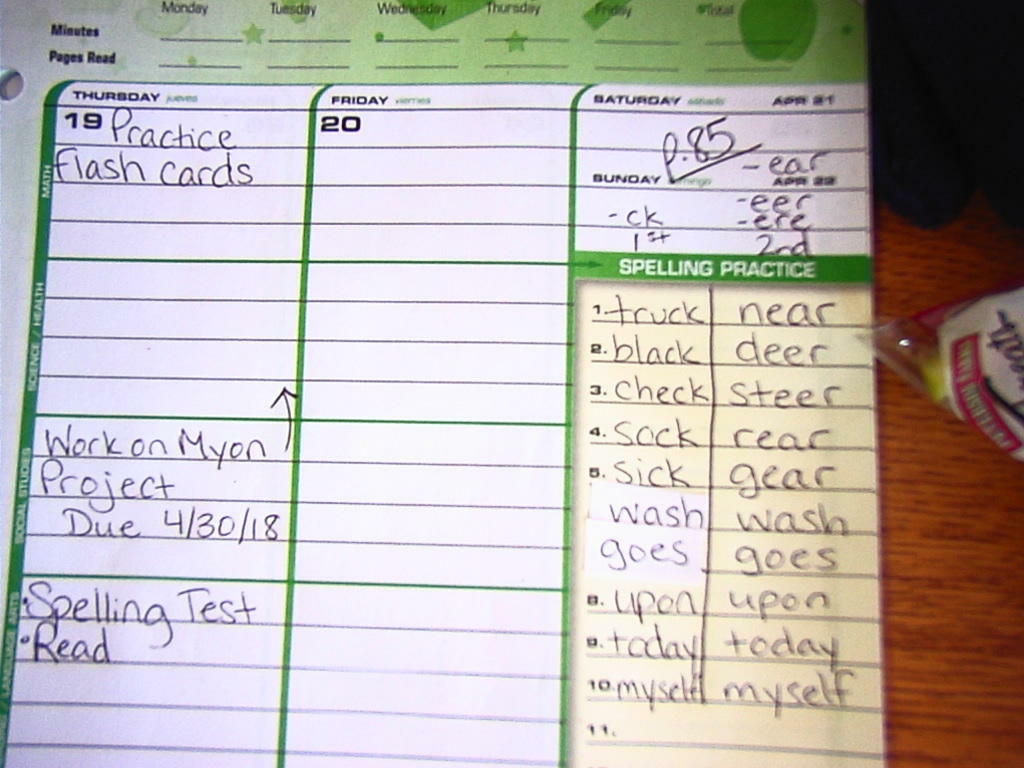 Monday Tuesday Wednesday Thursday Friday Total
Minutes
Pages Read
THURSDAY jueves
19 Practice
flash cards
MATH
SCIENCE / HEALTH
Work on Myon
Project
Due 4/30/18
SOCIAL STUDIES
•Spelling Test
•Read
LANGUAGE ARTS
FRIDAY viernes
20
SATURDAY sábado APR 21
p.85
-ear
SUNDAY domingo APR 22
-eer
-ck -ere
1st 2nd
SPELLING PRACTICE
1. truck near
2. black deer
3. check steer
4. sock rear
5. sick gear
wash wash
goes goes
8. upon upon
9. today today
10. myself myself
11.